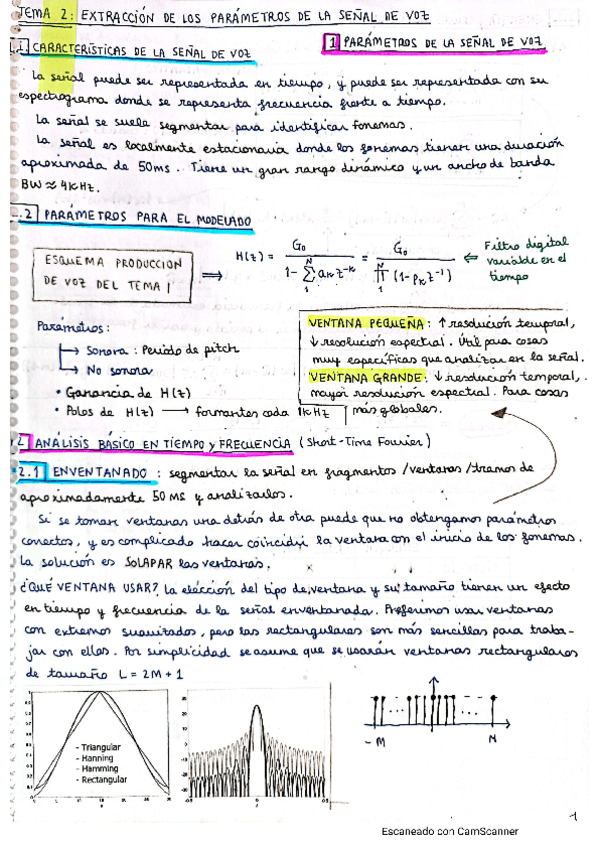 TEMA 2: EXTRACCIÓN DE LOS PARÁMETROS DE LA SEÑAL DE VOZ
1.1 CARACTERÍSTICAS DE LA SEÑAL DE VOZ
1 PARÁMETROS DE LA SEÑAL DE VOZ
La señal puede ser representada en tiempo, y puede ser representada con su
espectrograma donde se representa frecuencia frente a tiempo.
La señal se suele segmentar para identificar fonemas.
La señal es localmente estacionaria donde los fonemas tienen una duración
aproximada de 50ms. Tiene un gran rango dinámico y un ancho de banda
BW ≈ 4KHz.
1.2 PARÁMETROS PARA EL MODELADO
ESQUEMA PRODUCCION
DE VOZ DEL TEMA 1
⇒ H(z) = G₀ / (1 - Σ₁ᴺ aₖ z⁻ᵏ) = G₀ / (∏₁ᴺ (1 - pₖ z⁻¹))
⇐ Filtro digital
variable en el
tiempo
Parámetros:
→ Sonora: Periodo de pitch
→ No sonora
• Ganancia de H(z)
• Polos de H(z) → formantes cada 1KHz
VENTANA PEQUEÑA: ↑ resolución temporal,
↓ resolución espectral. Útil para cosas
muy específicas que analizar en la señal.
VENTANA GRANDE: ↓ resolución temporal,
mayor resolución espectral. Para cosas
más globales.
2 ANÁLISIS BÁSICO EN TIEMPO y FRECUENCIA (Short-Time Fourier)
2.1 ENVENTANADO: segmentar la señal en fragmentos /ventanas /tramos de
aproximadamente 50 MS y analizarlos.
Si se toman ventanas una detrás de otra puede que no obtengamos parámetros
correctos, y es complicado hacer coincidir la ventana con el inicio de los fonemas.
La solución es SOLAPAR las ventanas.
¿QUÉ VENTANA USAR? La elección del tipo de ventana y su tamaño tienen un efecto
en tiempo y frecuencia de la señal enventanada. Preferimos usar ventanas
con extremos suavizados, pero las rectangulares son más sencillas para traba-
jar con ellos. Por simplicidad se asume que se usarán ventanas rectangulares
de tamaño L = 2M + 1
- Triangular
- Hanning
- Hamming
- Rectangular
- M
M
1
Escaneado con CamScanner